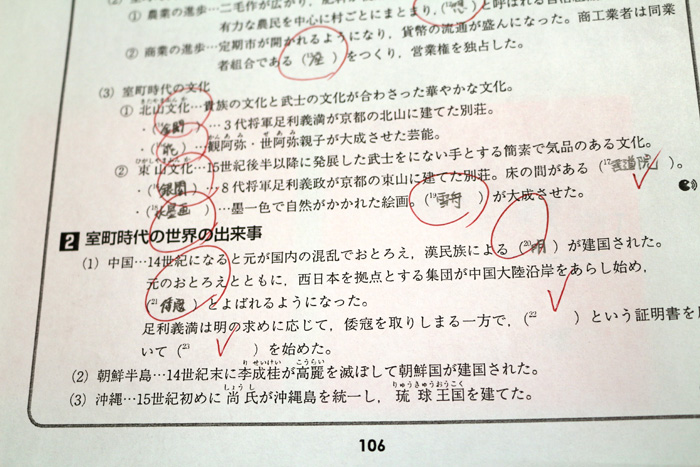 ① 農業の進歩…二毛作が広がり,
有力な農民を中心に村ごとにまとまり,( )と呼ばれる
② 商業の進歩…定期市が開かれるようになり, 貨幣の流通が盛んになった。商工業者は同業
者組合である(座)をつくり, 営業権を独占した。
(3) 室町時代の文化
① 北山文化…貴族の文化と武士の文化が合わさった華やかな文化。
・(金閣)…3代将軍足利義満が京都の北山に建てた別荘。
・(能)…観阿弥・世阿弥親子が大成させた芸能。
② 東山文化…15世紀後半以降に発展した武士をにない手とする簡素で気品のある文化。
・(銀閣)…8代将軍足利義政が京都の東山に建てた別荘。床の間がある(17書道院)。
・(水墨画)…墨一色で自然がかかれた絵画。(19雪舟)が大成させた。
2 室町時代の世界の出来事
(1) 中国…14世紀になると元が国内の混乱でおとろえ, 漢民族による(20明)が建国された。
元のおとろえとともに, 西日本を拠点とする集団が中国大陸沿岸をあらし始め,
(21倭寇)とよばれるようになった。
足利義満は明の求めに応じて, 倭寇を取りしまる一方で,(22 )という証明書を
いて(23 )を始めた。
(2) 朝鮮半島…14世紀末に李成桂が高麗を滅ぼして朝鮮国が建国された。
(3) 沖縄…15世紀初めに尚氏が沖縄島を統一し, 琉球王国を建てた。
106